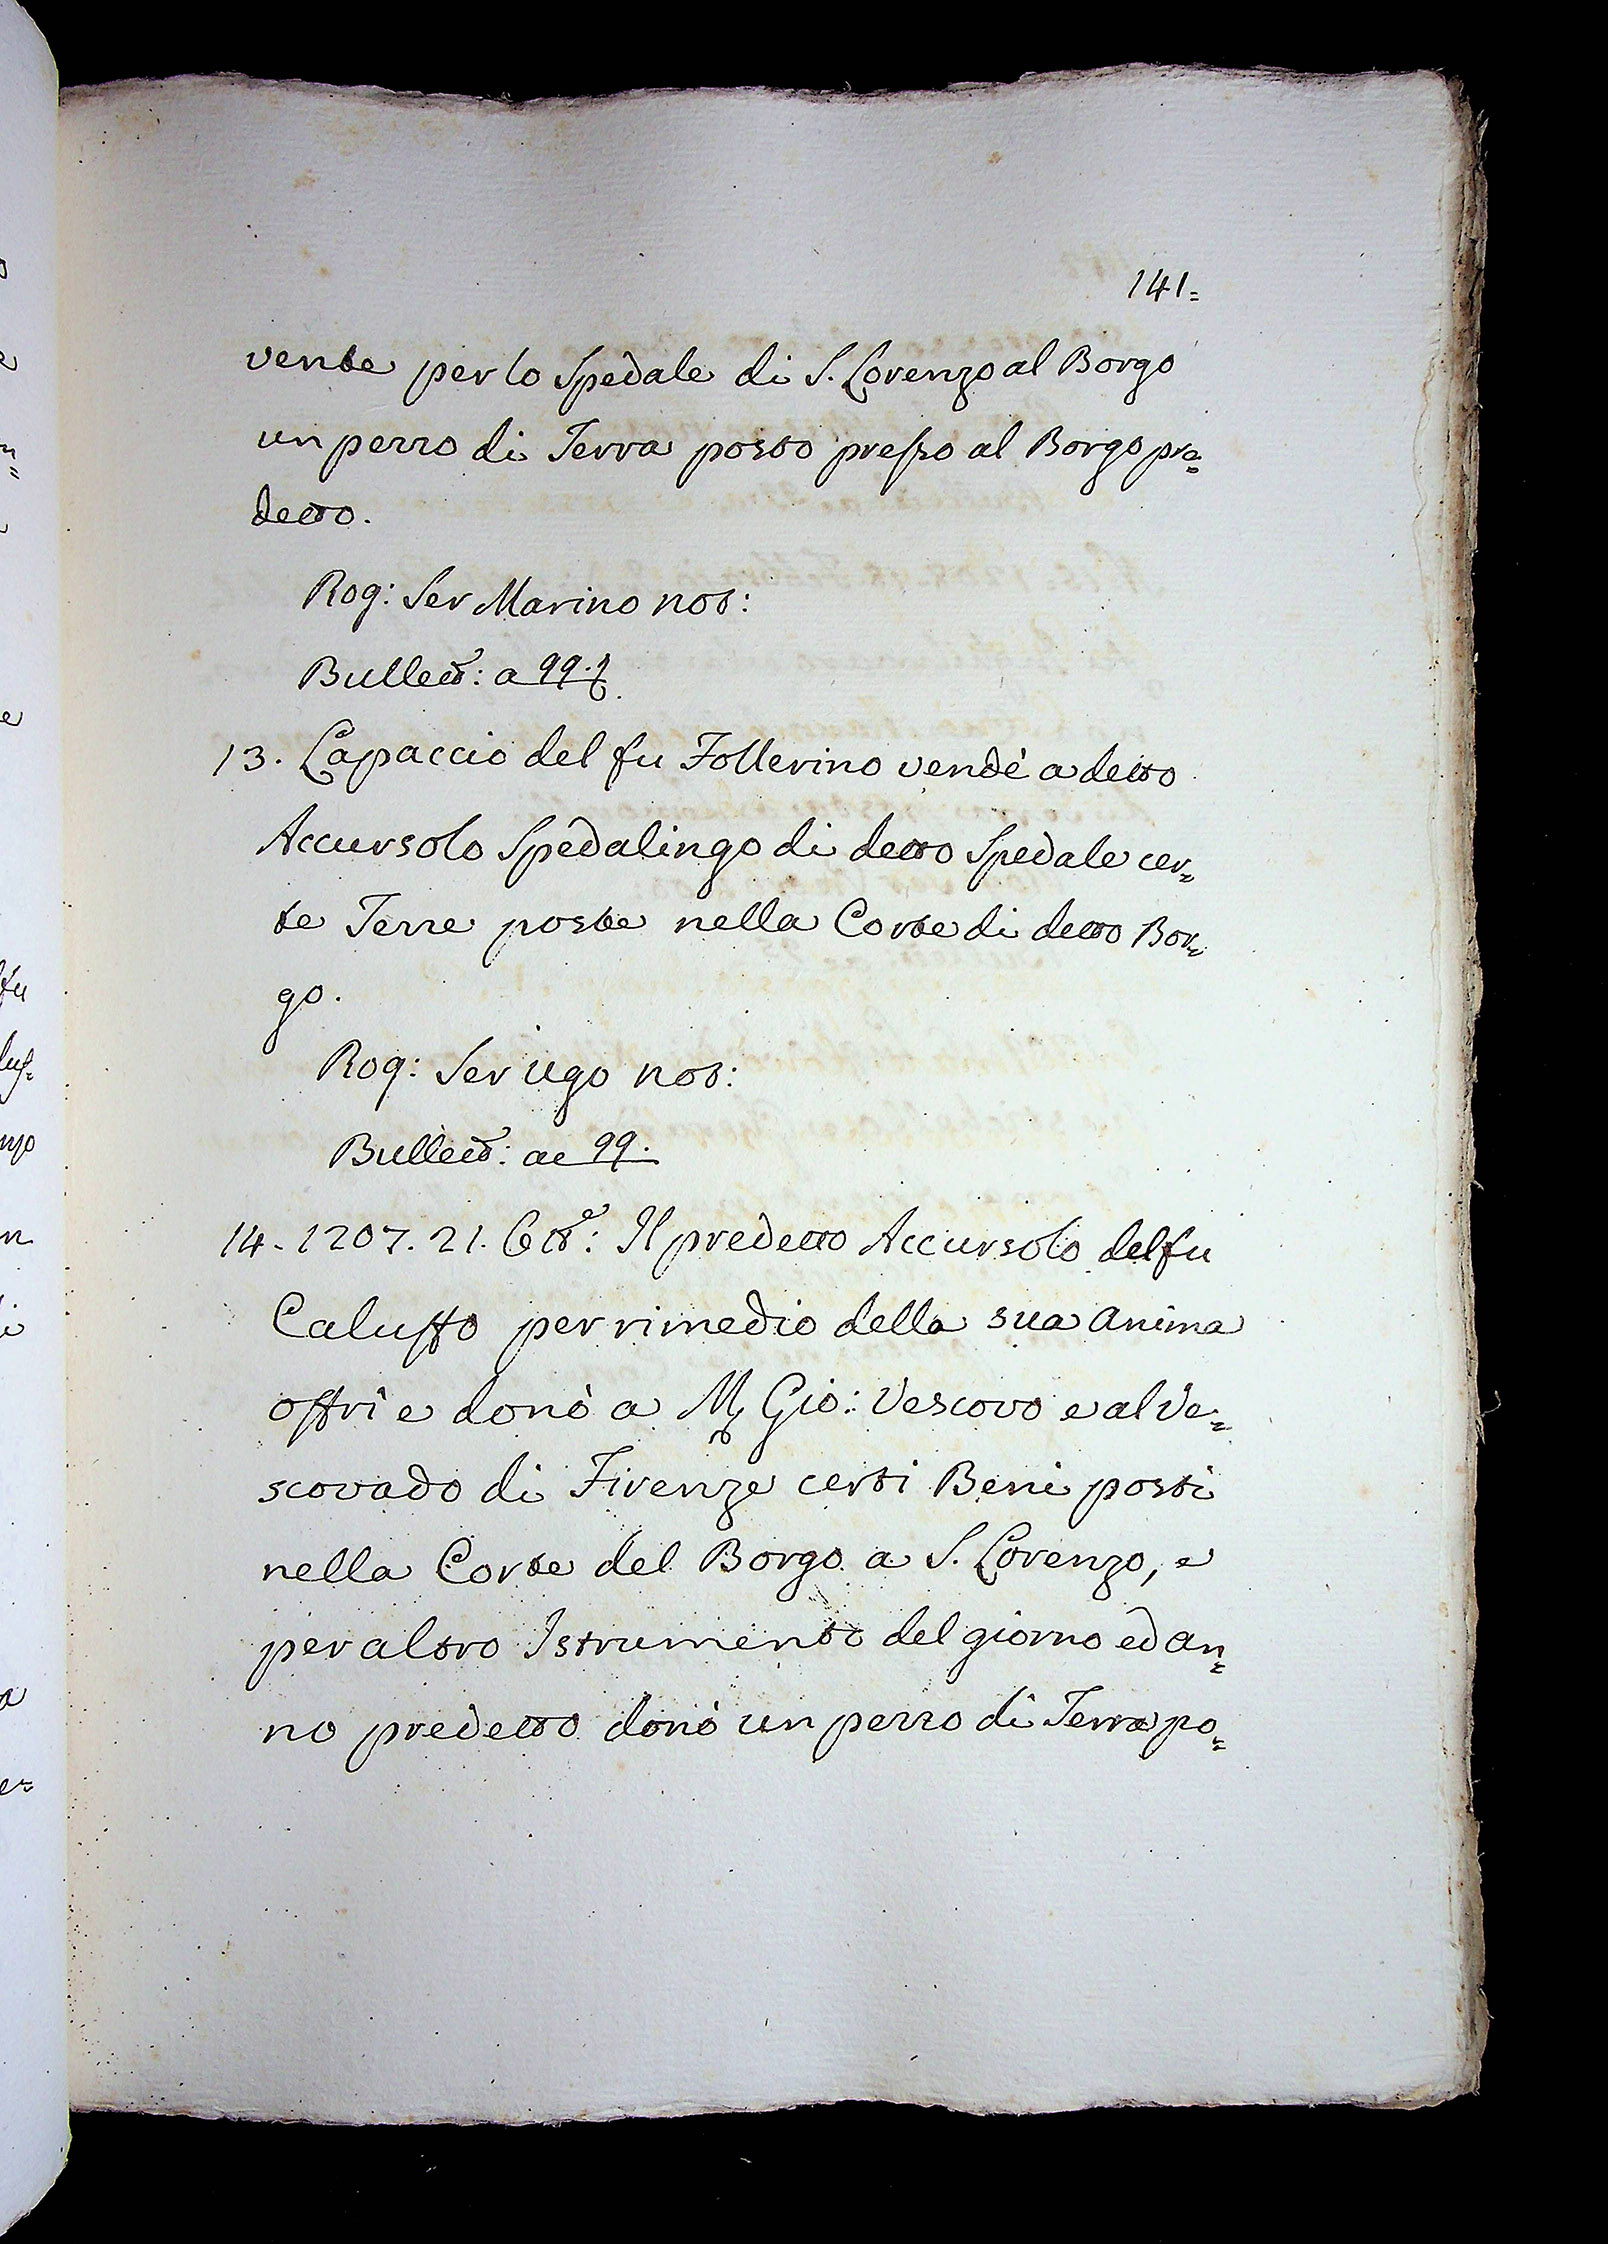 141=
vente per lo Spedale di S. Lorenzo al Borgo
un pezzo di Terra posto presso al Borgo pre=
detto.
Rog: Ser Marino not:
Bullett: a 99.
13. Lapaccio del fu Follerino vendè a detto
Accursolo Spedalingo di detto Spedale cer=
te Terre poste nella Corte di detto Bor=
go.
Rog: Ser Ugo not:
Bullett: ac 99.
14. 1207. 21. Otte: Il predetto Accursolo del fu
Caluffo per rimedio della sua anima
offrì e donò a M Gio: Vescovo e al Ve=
scovado di Firenze certi Beni posti
nella Corte del Borgo a S. Lorenzo, e
per altro Istrumento del giorno ed an=
no predetto donò un pezzo di Terra po=